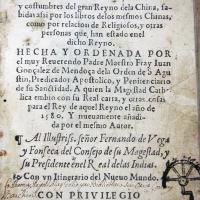 y costumbres del gran Reyno dela China, sa-
bidas assi por los libros delos mesmos Chinas,
como por relacion de Religiosos, y otras
personas que han estado en el
dicho Reyno.
HECHA Y ORDENADA POR
el muy Reuerendo Padre Maestro Fray Iuan
Gonçalez de Mendoça dela Orden de S. Agu
stin, Predicador Apostolico, y Penitenciario
de su Sanctidad. A quien la Magestad Catho
lica embio con su Real carta, y otras cosas
para el Rey de aquel Reyno el año de
1580. Y nueuamente añadi-
da por el mesmo Autor.
¶ Al Illustriss. señor Fernando de Vega
y Fonseca del Consejo de su Magestad, y
su Presidente en el Real delas Indias.
Con vn Itinerario del Nueuo Mundo.
CON PRIVILEGIO